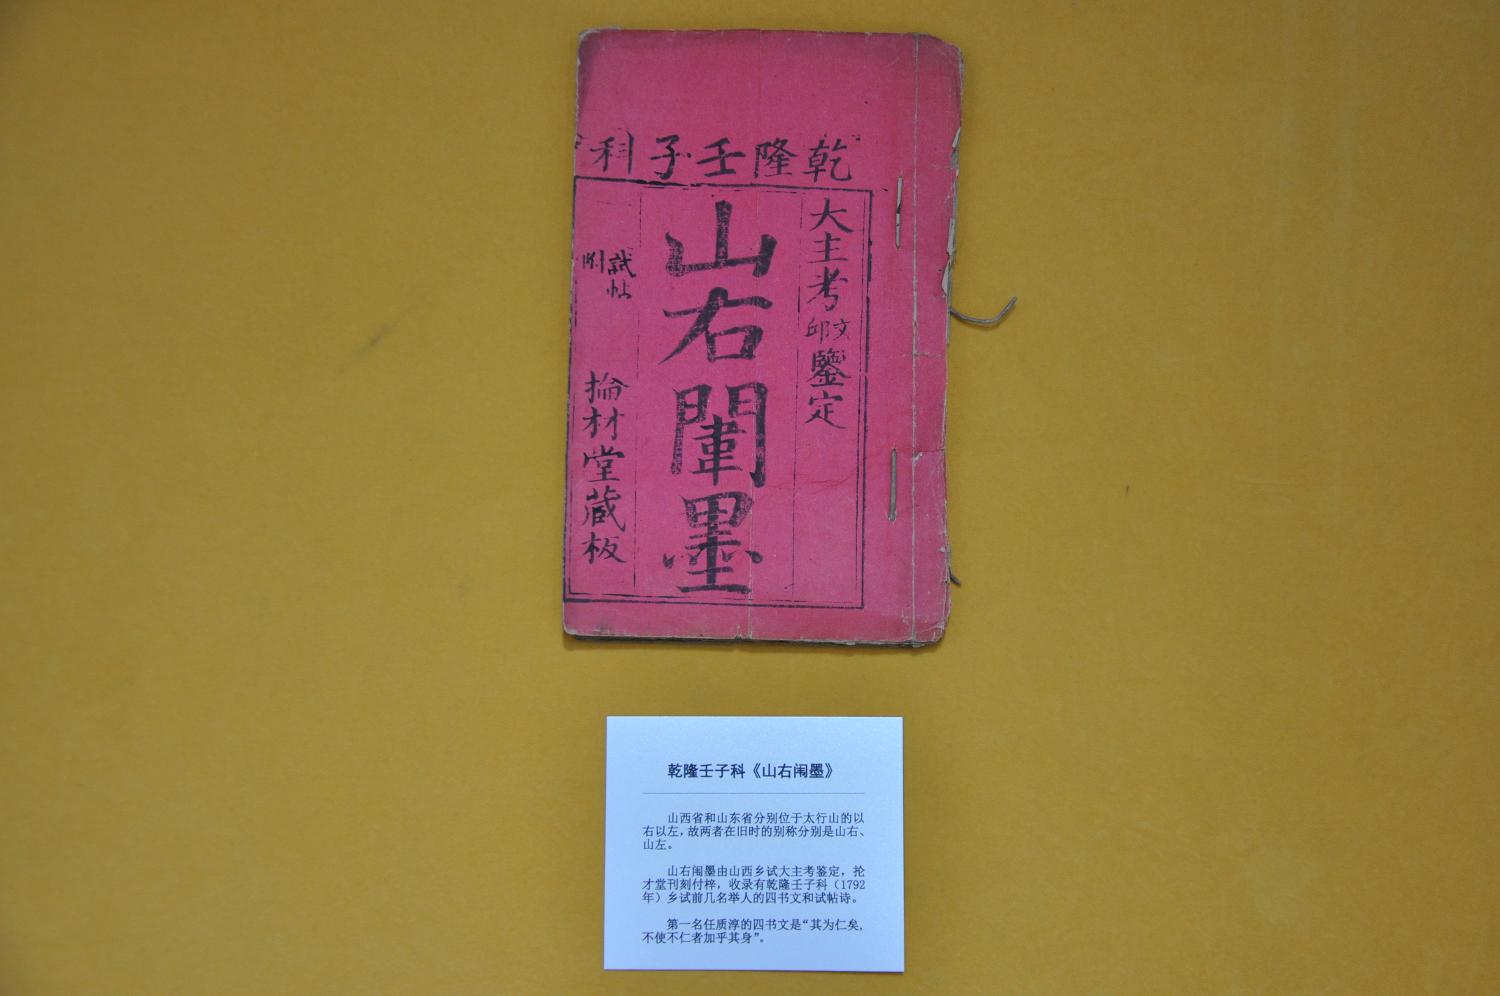 乾隆壬子科
大主考文印鑒定
山右闈墨
試帖附
掄材堂藏板
乾隆壬子科《山右闱墨》
山西省和山东省分别位于太行山的以
右以左，故两者在旧时的别称分别是山右、
山左。
山右闱墨由山西乡试大主考鉴定，抡
才堂刊刻付梓，收录有乾隆壬子科（1792
年）乡试前几名举人的四书文和试帖诗。
第一名任质淳的四书文是“其为仁矣，
不使不仁者加乎其身”。